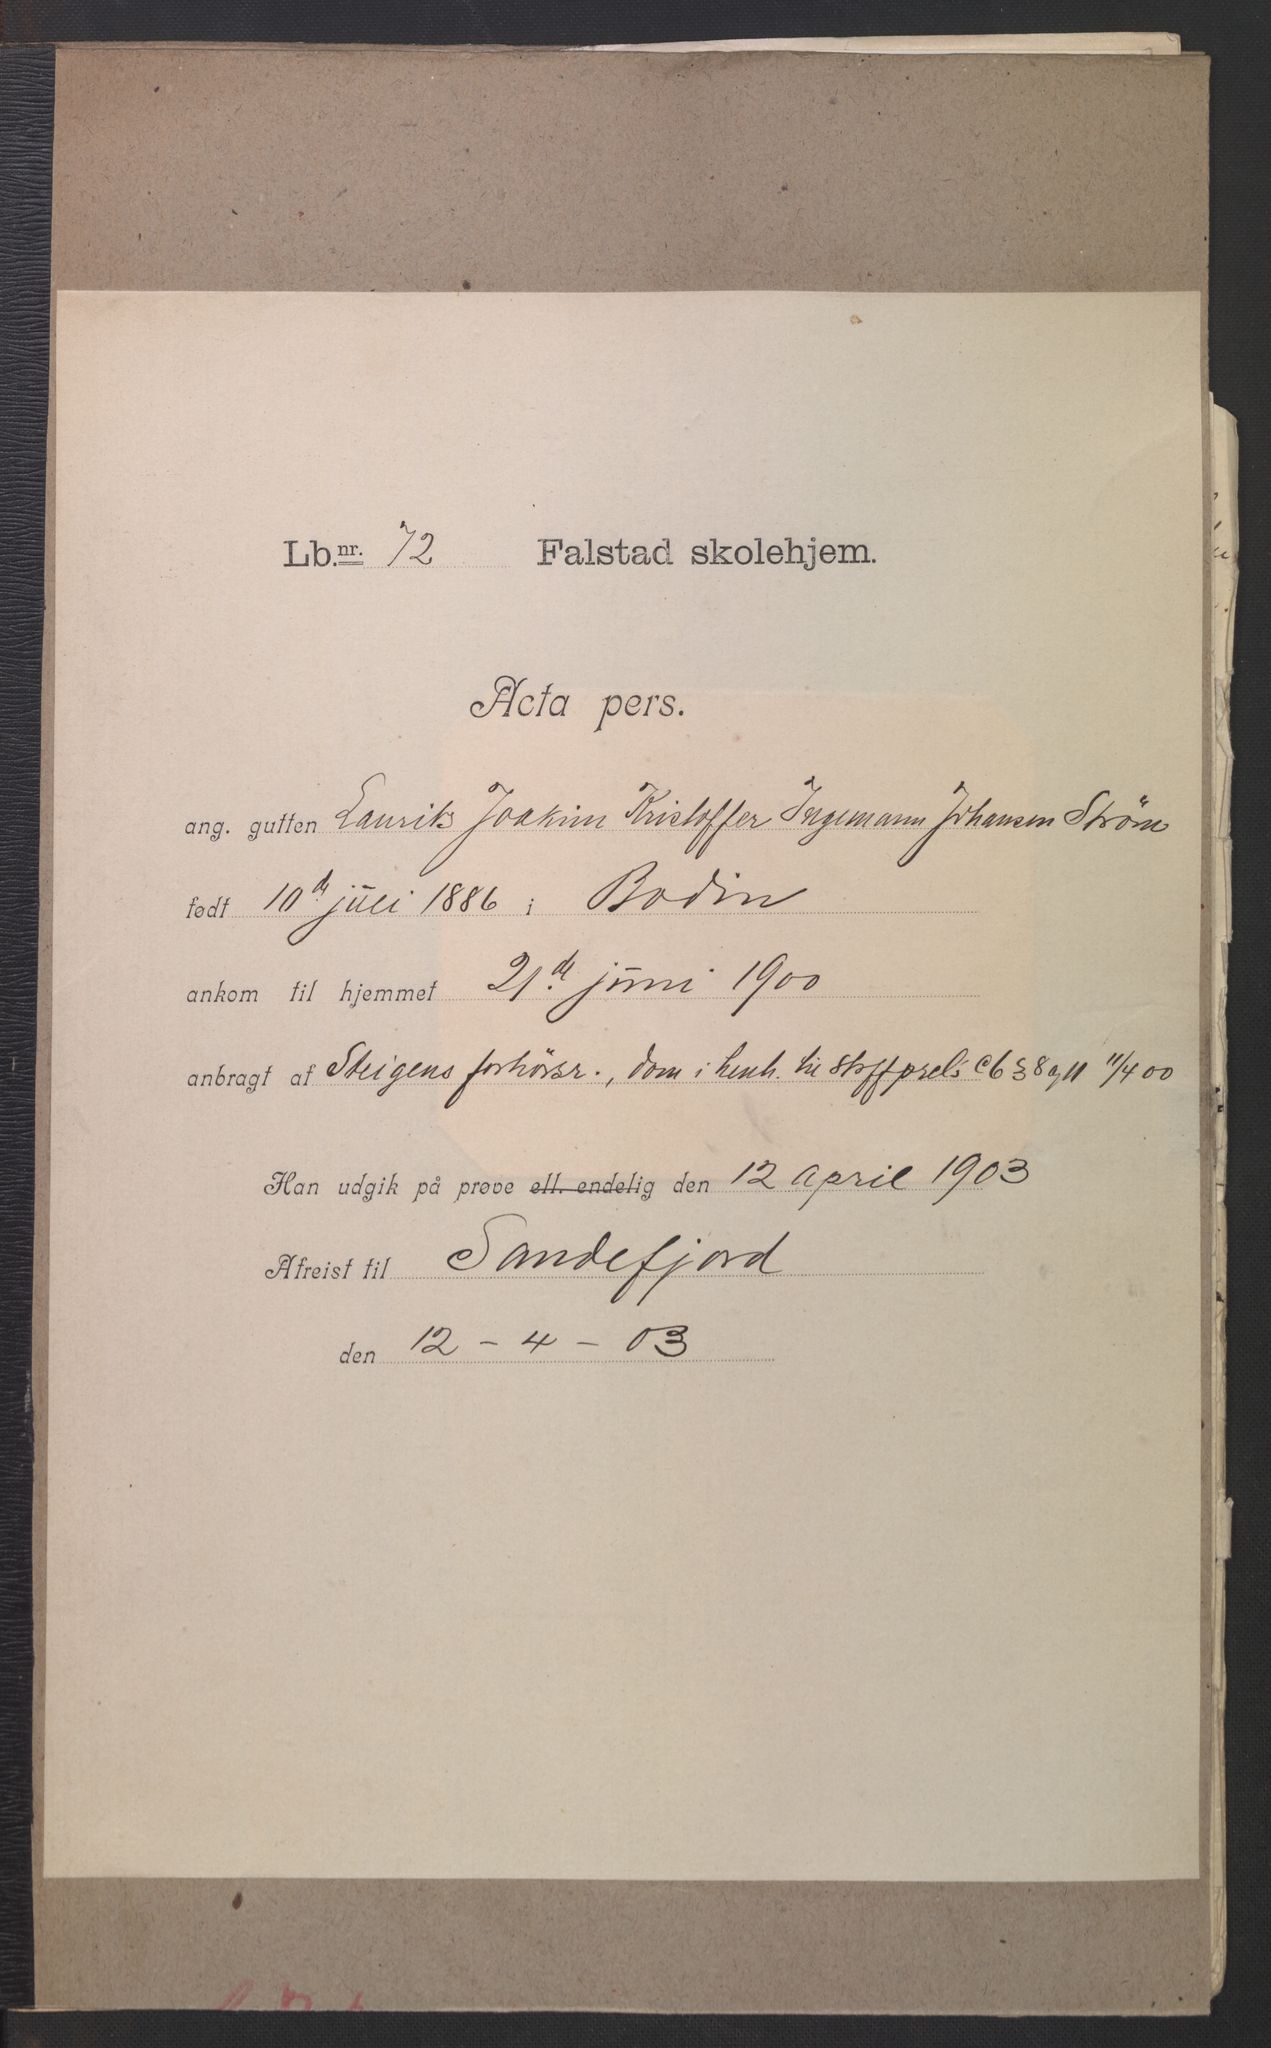 Lb.nr. 72 Falstad skolehjem.
Acta pers.
ang. gutten Laurits Joakim Kristoffer Ingemann Johansen Ström
født 10de juli 1886 i Bodin
ankom til hjemmet 21de juni 1900
anbragt af Steigens forhörsr., dom i henh. til Stffprcl's § 8 og 11 11/4 00
Han udgik på prøve ell. endelig den 12 april 1903
Afreist til Sandefjord
den 12 - 4 - 03